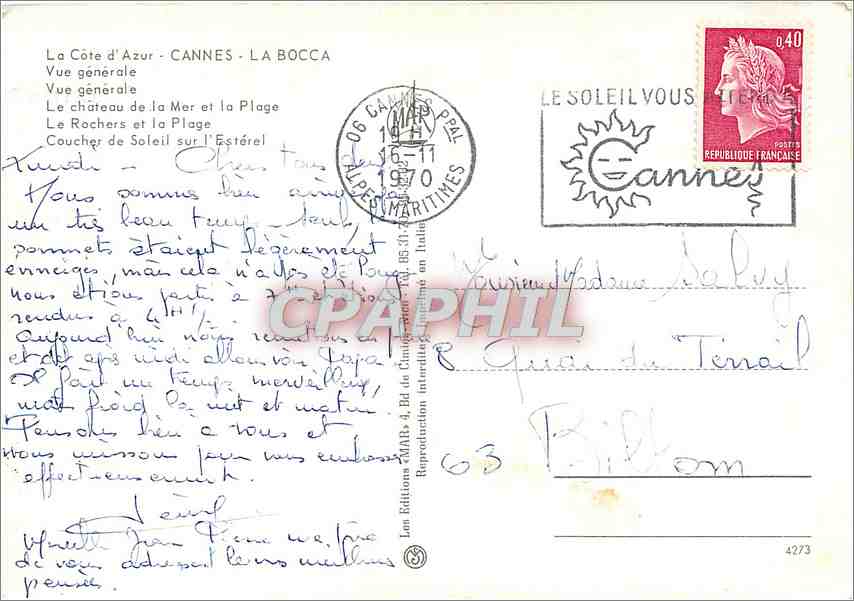 La Côte d'Azur - CANNES - LA BOCCA
Vue générale
Vue générale
Le château de la Mer et la Plage
Le Rochers et la Plage
Coucher de Soleil sur l'Estérel
06 CANNES PPAL
MAR
16-11
1970
ALPES MARITIMES
LE SOLEIL VOUS
Cannes
0,40
POSTES
REPUBLIQUE FRANÇAISE
Chers tous deux
Nous sommes bien
un très beau temps - seuls,
sommets étaient légèrement
enneigés, mais cela n'a pas été
nous étions partis à 7
rendus à 4H
aujourd'hui nous
et cet après midi allons voir Papa.
Il fait un temps merveilleux,
mais froid la nuit et matin.
Pensons bien à vous et
nous unissons pour vous embrasser
effectueusement.
Jean
de vous adresser leurs meilleures
pensées.
Monsieur Madame Salvy
8 Quai du Terrail
63 Billom
Les Editions «MAR» 4, Bd de Cimiez, Nice - Tél. 85
Reproduction interdite - Imprimé en Italie
CPAPHIL
4273